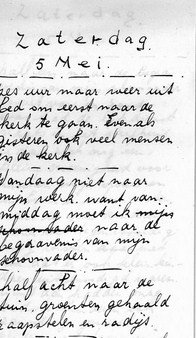 Zaterdag.
5 Mei.
zes uur maar weer uit
bed om eerst naar de
kerk te gaan. Evenals
gisteren ook veel mensen
in de kerk.
Vandaag niet naar
mijn werk want van-
middag moet ik mijn
schoonvader naar de
begravenis van mijn
schoonvader.
half acht naar de
tuin, groenten gehaald
kaapstelen en radijs.